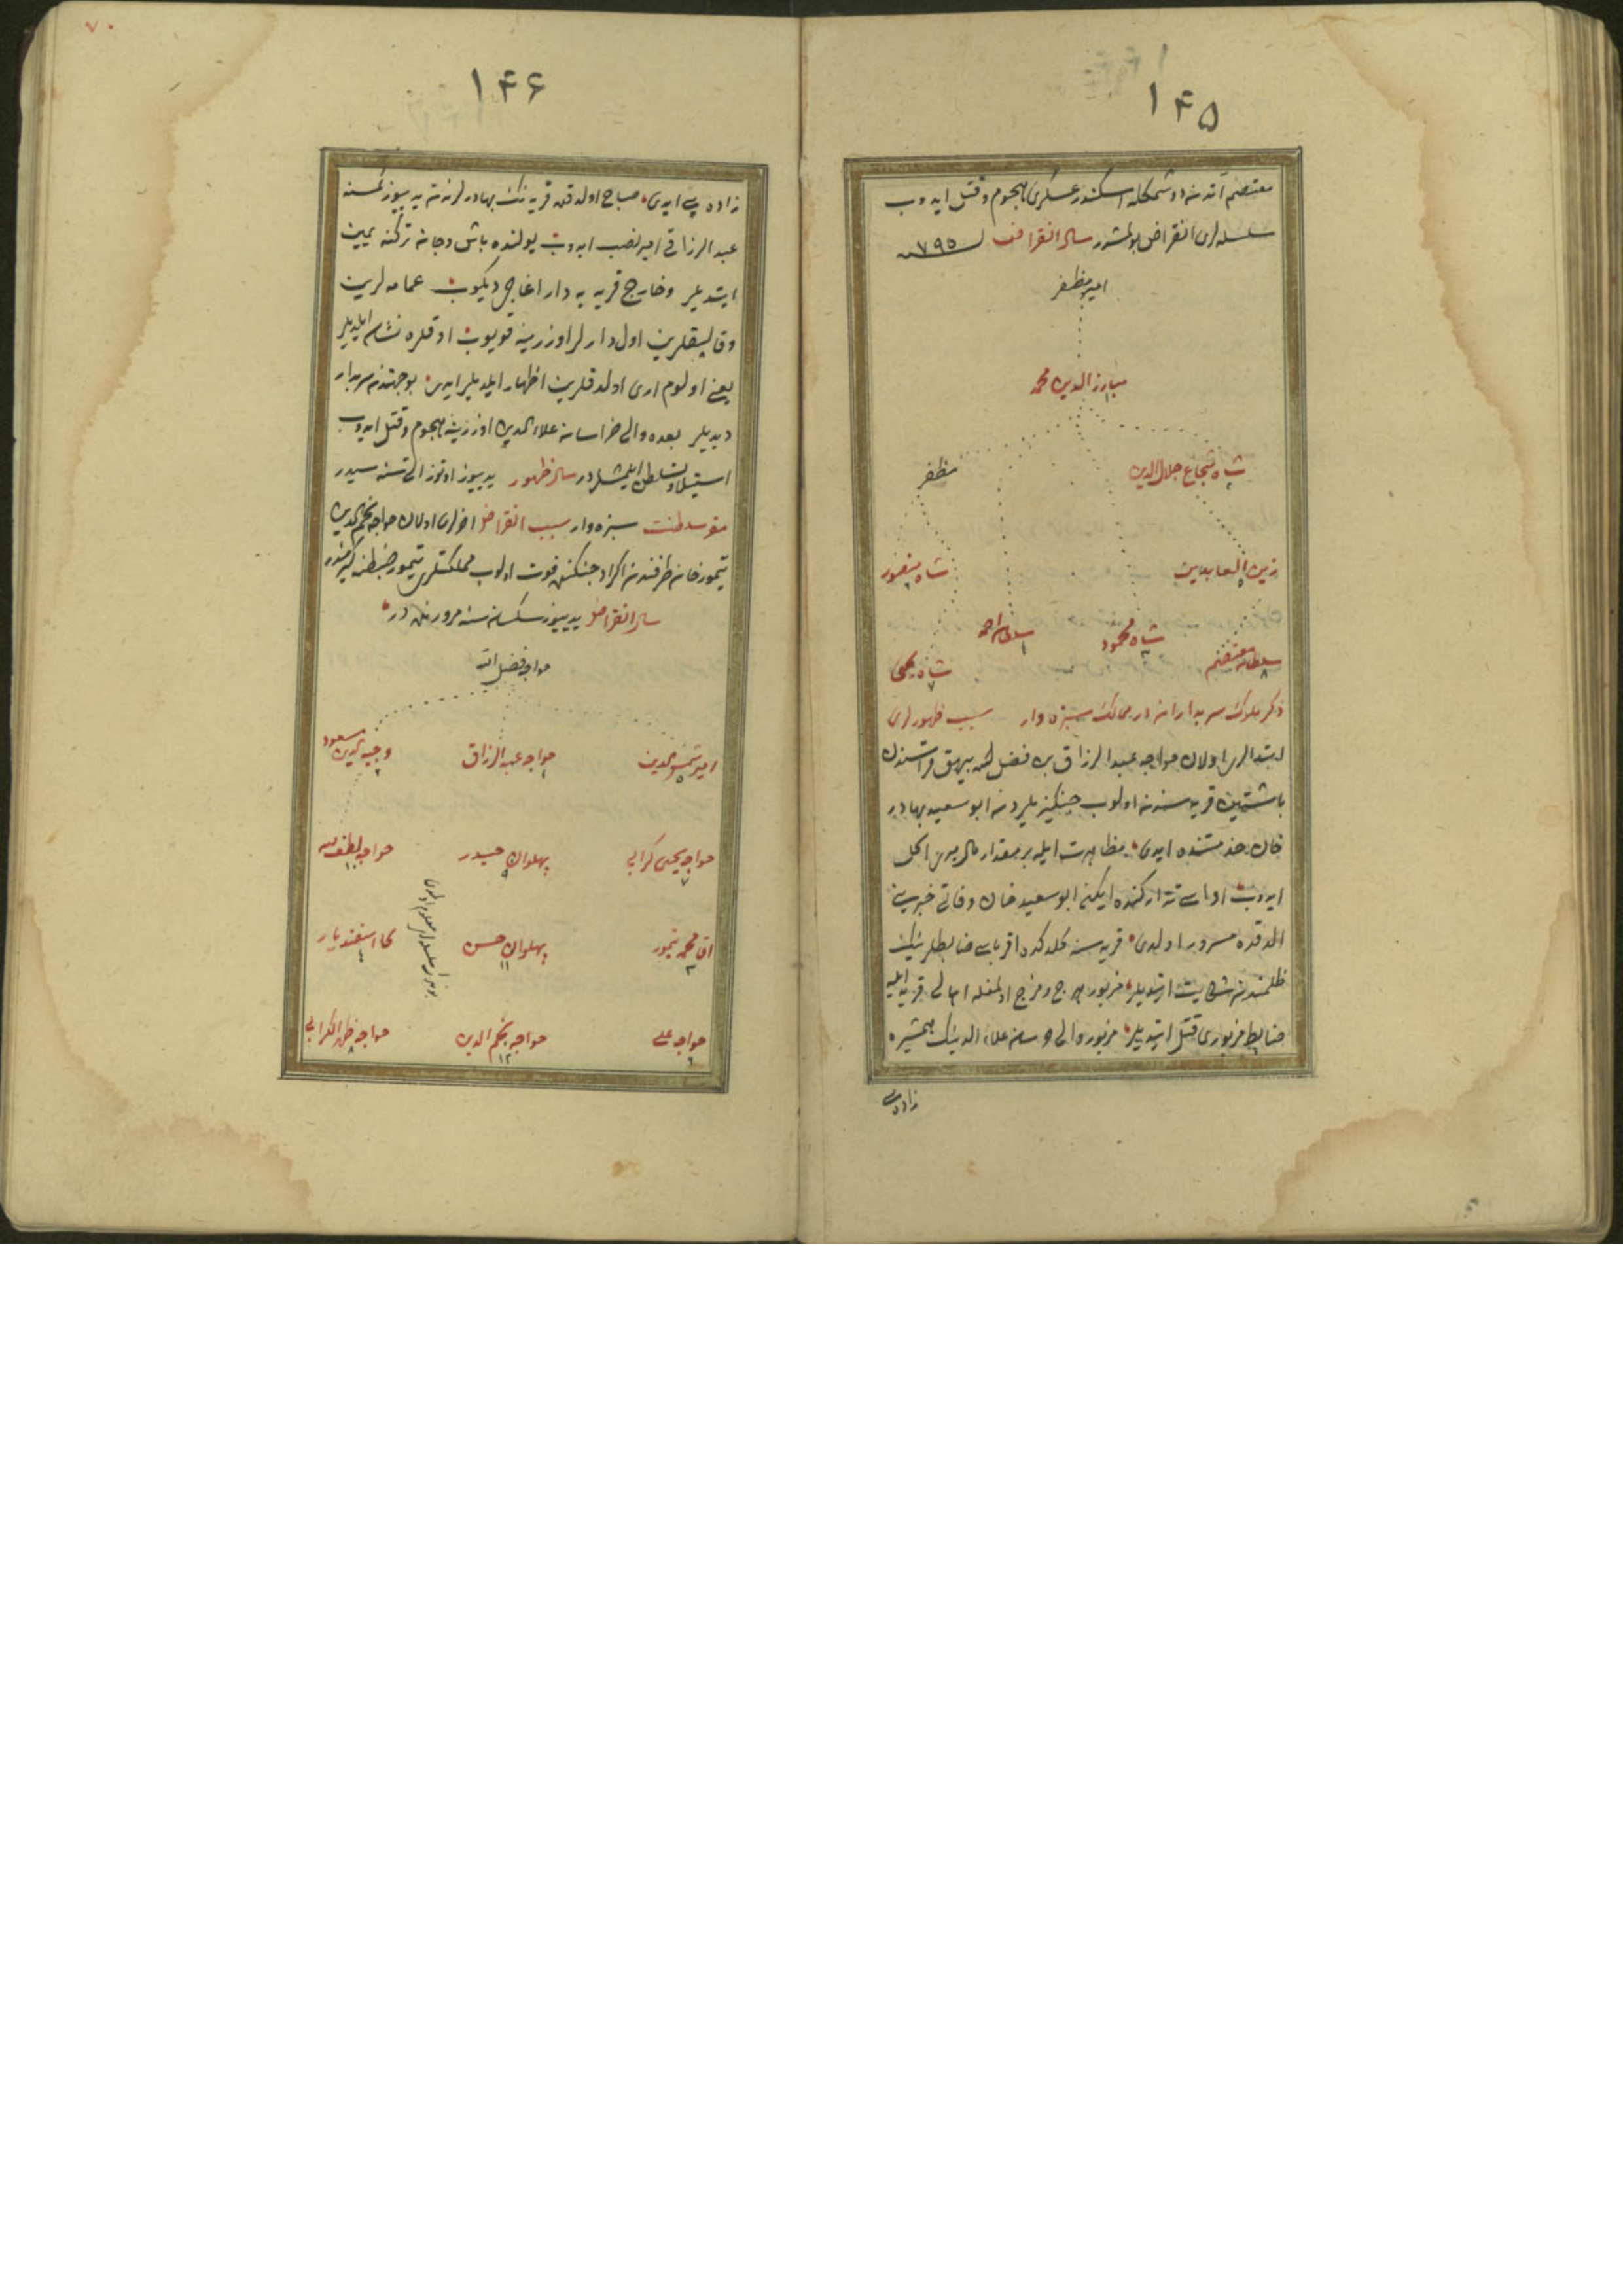 ۱۴۵
معتصم آندن دوشمكله اسكندر عسكرى هجوم و قتل ايدوب
سلسله لرى انقراض بولمشدر سال انقراض سنه ۷۹۵
امير مظفر
مبارز الدين محمد
شاه شجاع جلال الدين
مظفر
زين العابدين
شاه منصور
سلطان احمد
شاه محمود
سلطان معتصم
شاه يحيى
ذكر ملوك سربداران در ممالك سبزه وار سبب ظهورلرى
ابتدالرى اولان خواجه عبد الرزاق بن فضل الله بيهق قراسندن
باشتين قريه سندن اولوب جنكيزيلردن ابو سعيد بهادر
خان خدمتنده ايدى مظاهرت ايله بر مقدار مال ميرى اكل
ايدوب اداسى تداركنده ايكن ابو سعيد خان وفاتى خبرينى
الدقده مسرور اولدى قريه سنه كلدكده اقرباسى ضابطلرينك
ظلمندن شكايت ايتديلر مزبور هرج و مرج اولمغله اهالى قريه ايله
ضابط مزبورى قتل ايتديلر مزبور والى خراسان علاء الدينك همشيره
زاده سى
۷۰
۱۴۶
زاده سى ايدى صباح اولدقده قريه نك بهادرلرندن يديوز كمسنه
عبد الرزاقى امير نصب ايدوب يولنده باش و جان تركنه يمين
ايتديلر و خارج قريه يه دار اغاجى ديكوب عمامه لرين
و قاليقلرين اول دارلر اوزرينه قويوب اوقلره نشان ايلديلر
يعنى اولوم ارى اولدقلرين اظهار ايلديلر ايدى بو جهتدن سربدار
ديديلر بعده والى خراسان علاء الدين اوزرينه هجوم و قتل ايدوب
استيلا و تسلطن ايلمشلردر سال ظهور يديوز اوتوز التى سنه سيدر
مقر سلطنت سبزه وار سبب انقراض اخرلرى اولان خواجه نجم الدين
تيمور خان طرفندن اكراد جنكنده فوت اولوب مملكتلرى تيمور ضبطنه كيرمشدر
سال انقراض يديوز سكسان سنه مرورنده در
خواجه فضل الله
امير شمس الدين
خواجه عبد الرزاق
وجيه الدين مسعود
خواجه يحيى كرابى
پهلوان حيدر
خواجه لطف الله
اق محمد تيمور
پهلوان حسن
كلا اسفنديار
خواجه على
خواجه نجم الدين
خواجه ظهير الكرابى